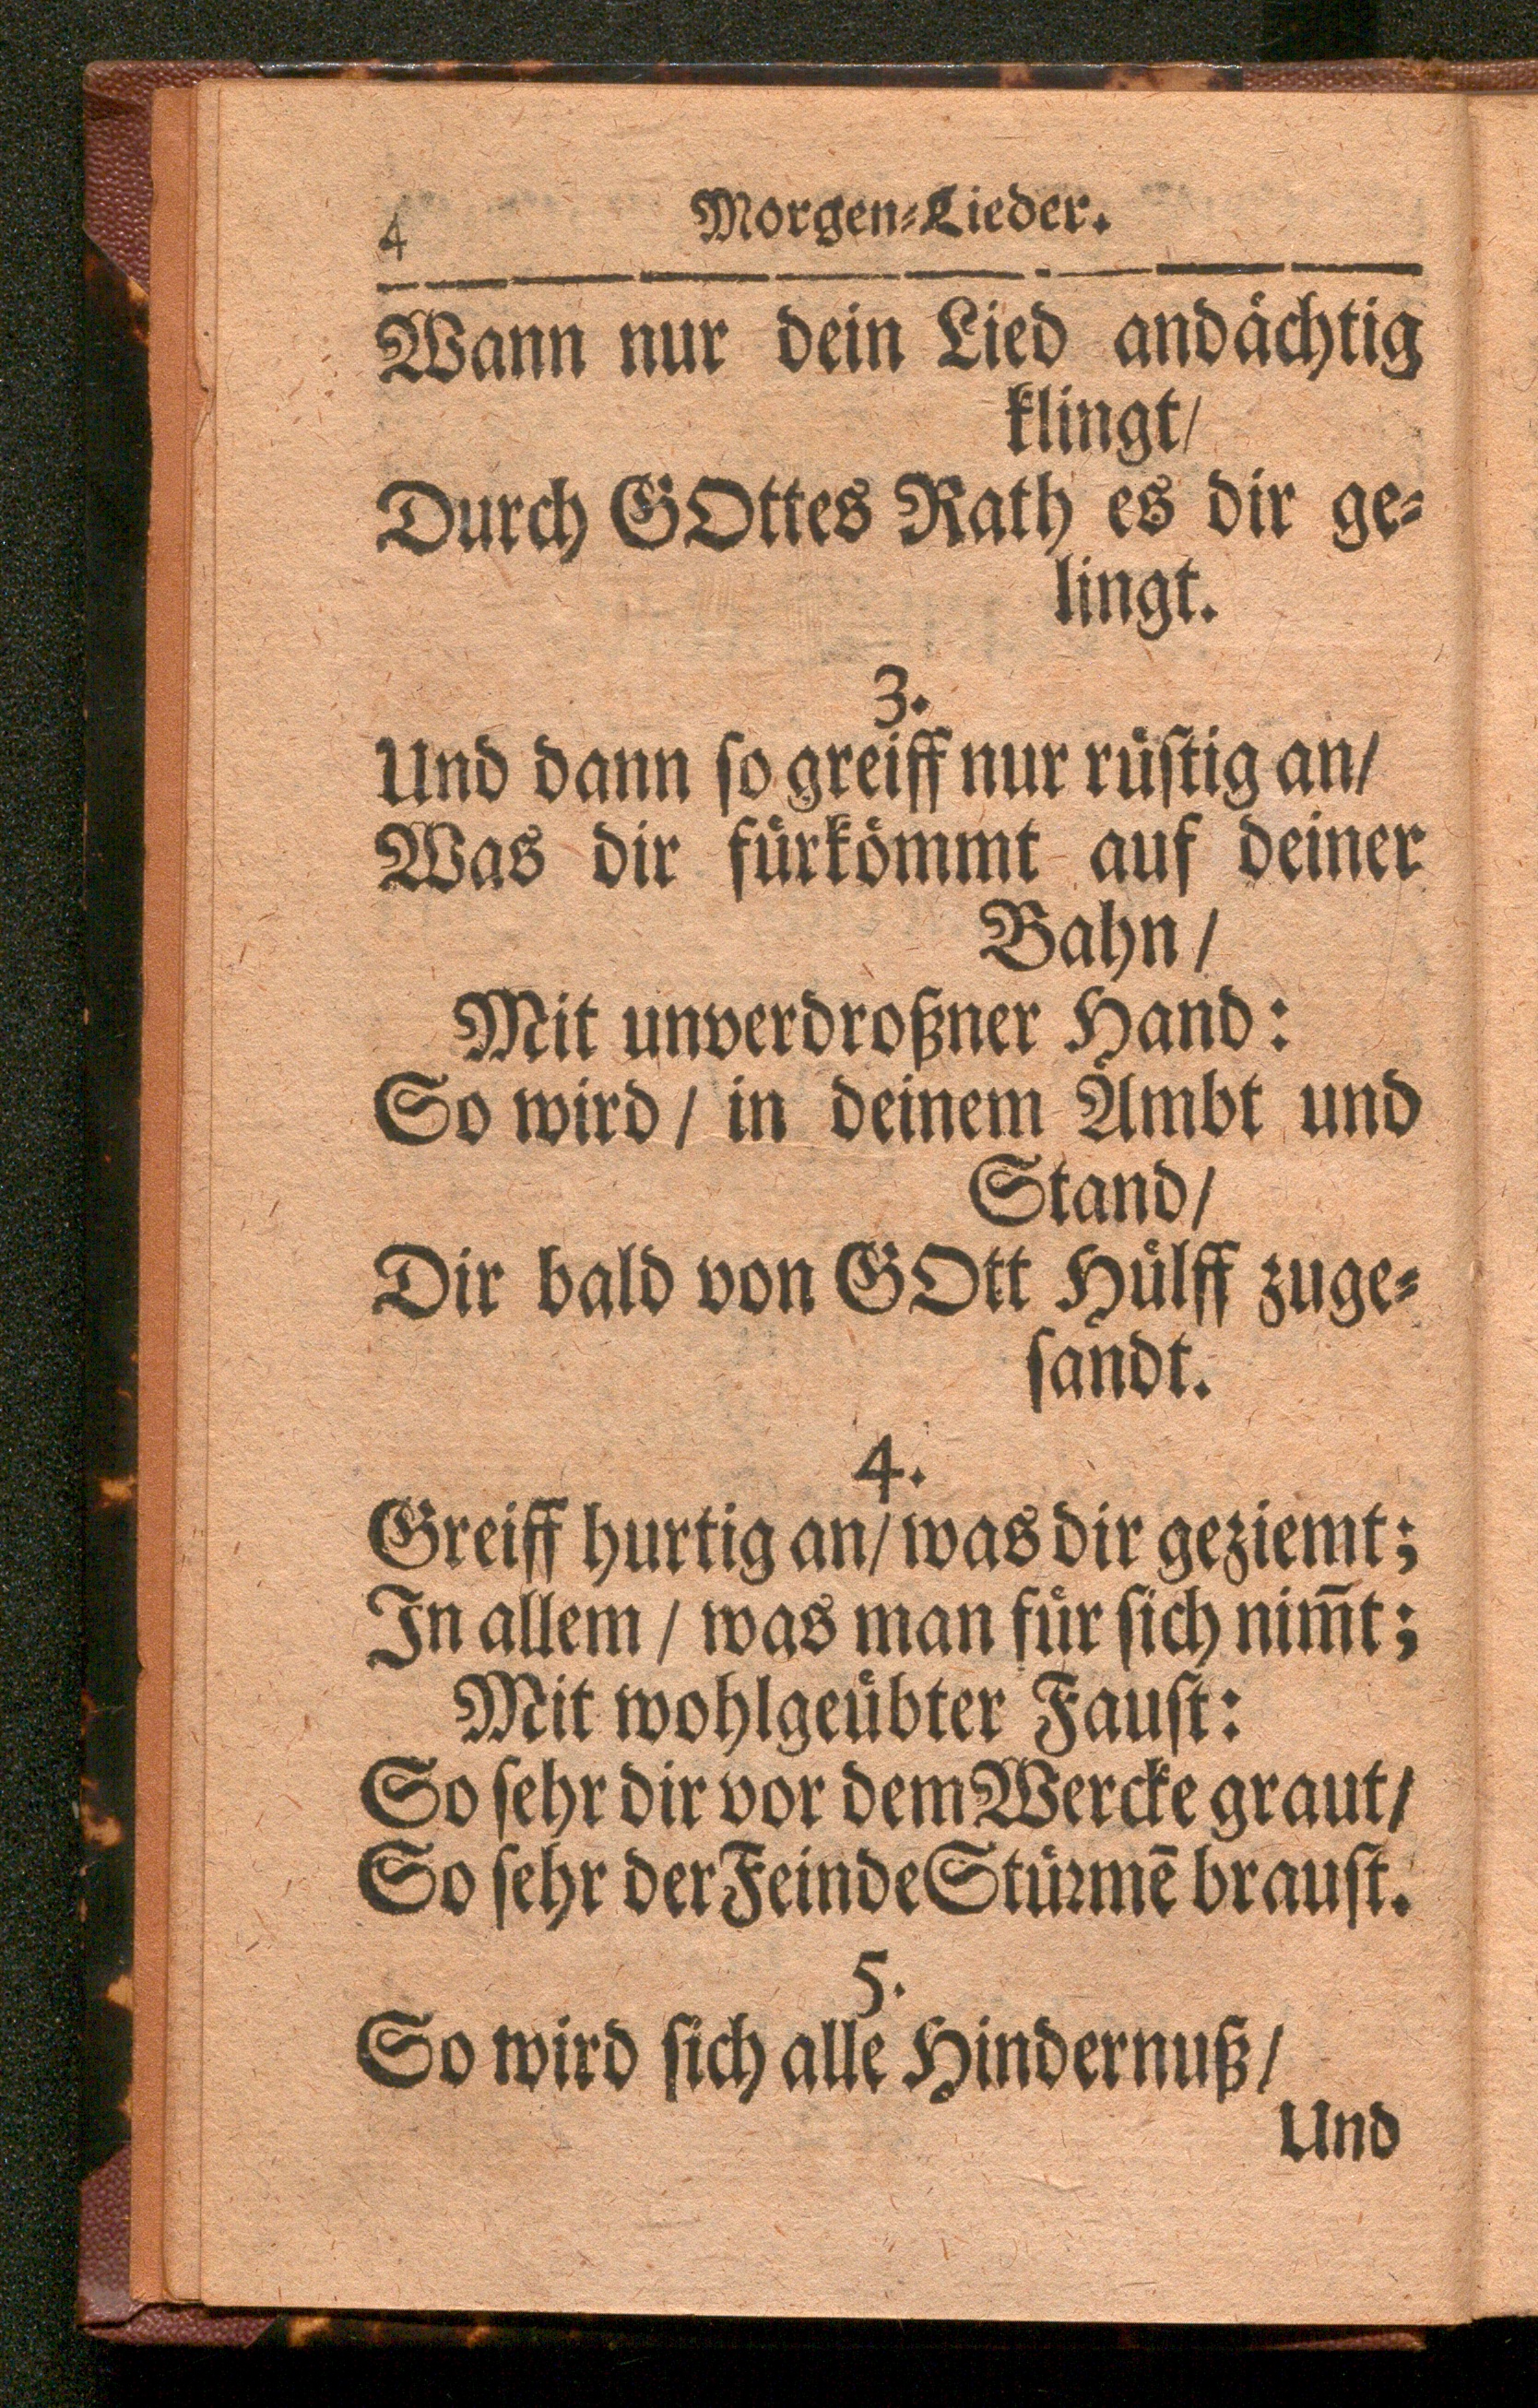 4 Morgen-Lieder.
Wann nur dein Lied andaͤchtig
klingt/
Durch GOttes Rath es dir ge-
lingt.
3.
Und dann ſo greiff nur ruͤſtig an/
Was dir fuͤrkoͤmmt auf deiner
Bahn/
Mit unverdroßner Hand:
So wird/ in deinem Ambt und
Stand/
Dir bald von GOtt Huͤlff zuge-
ſandt.
4.
Greiff hurtig an/ was dir geziemt;
In allem/ was man fuͤr ſich nim̃t;
Mit wohlgeuͤbter Fauſt:
So ſehr dir vor dem Wercke graut/
So ſehr der Feinde Stuͤꝛmẽ brauſt.
5.
So wird ſich alle Hindernuß/
Und